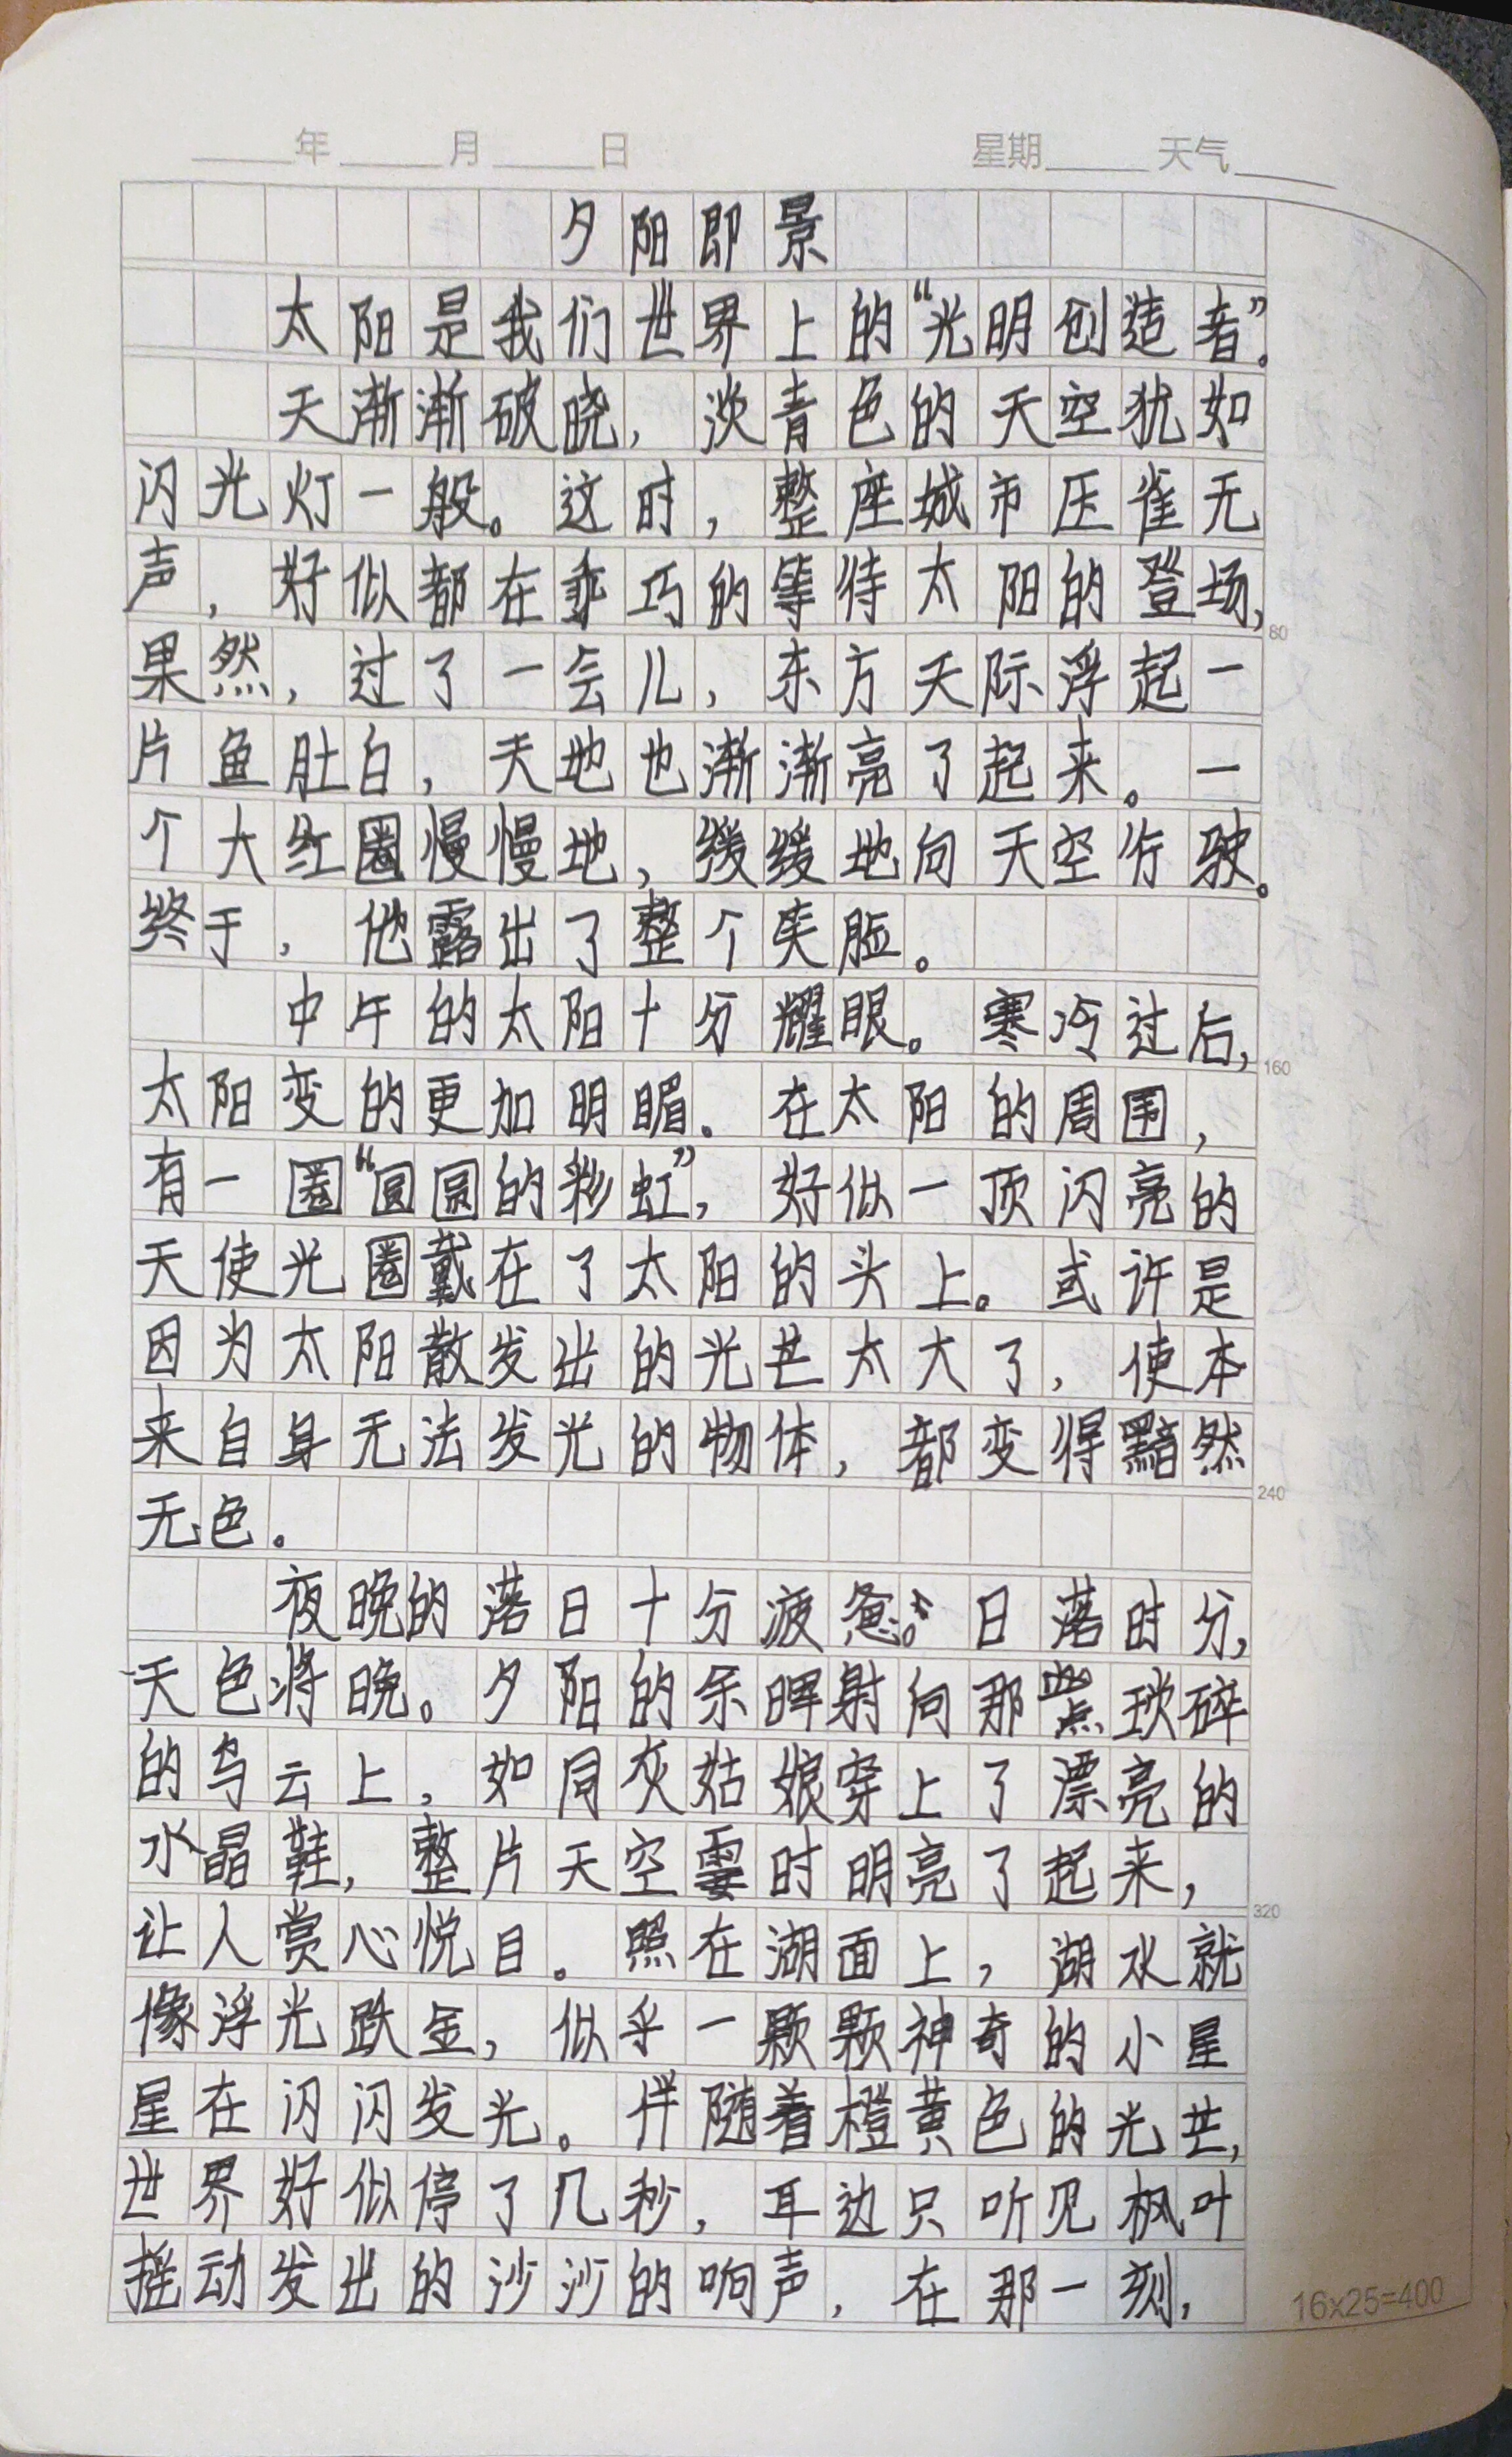 年 月 日 星期 天气
夕阳即景
太阳是我们世界上的“光明创造者”。
天渐渐破晓，淡青色的天空犹如
闪光灯一般。这时，整座城市压雀无
声，好似都在乖巧的等待太阳的登场，
80
果然，过了一会儿，东方天际浮起一
片鱼肚白，天地也渐渐亮了起来。一
个大红圈慢慢地，缓缓地向天空行驶。
终于，他露出了整个笑脸。
中午的太阳十分耀眼。寒冷过后，
160
太阳变的更加明媚。在太阳的周围，
有一圈“圆圆的彩虹”，好似一顶闪亮的
天使光圈戴在了太阳的头上。或许是
因为太阳散发出的光芒太大了，使本
来自身无法发光的物体，都变得黯然
240
无色。
夜晚的落日十分疲惫。日落时分，
天色将晚。夕阳的余晖射向那些琐碎
的乌云上，如同灰姑娘穿上了漂亮的
水晶鞋，整片天空霎时明亮了起来，
320
让人赏心悦目。照在湖面上，湖水就
像浮光跌金，似乎一颗颗神奇的小星
星在闪闪发光。伴随着橙黄色的光芒，
世界好似停了几秒，耳边只听见枫叶
摇动发出的沙沙的响声，在那一刻，
16x25=400